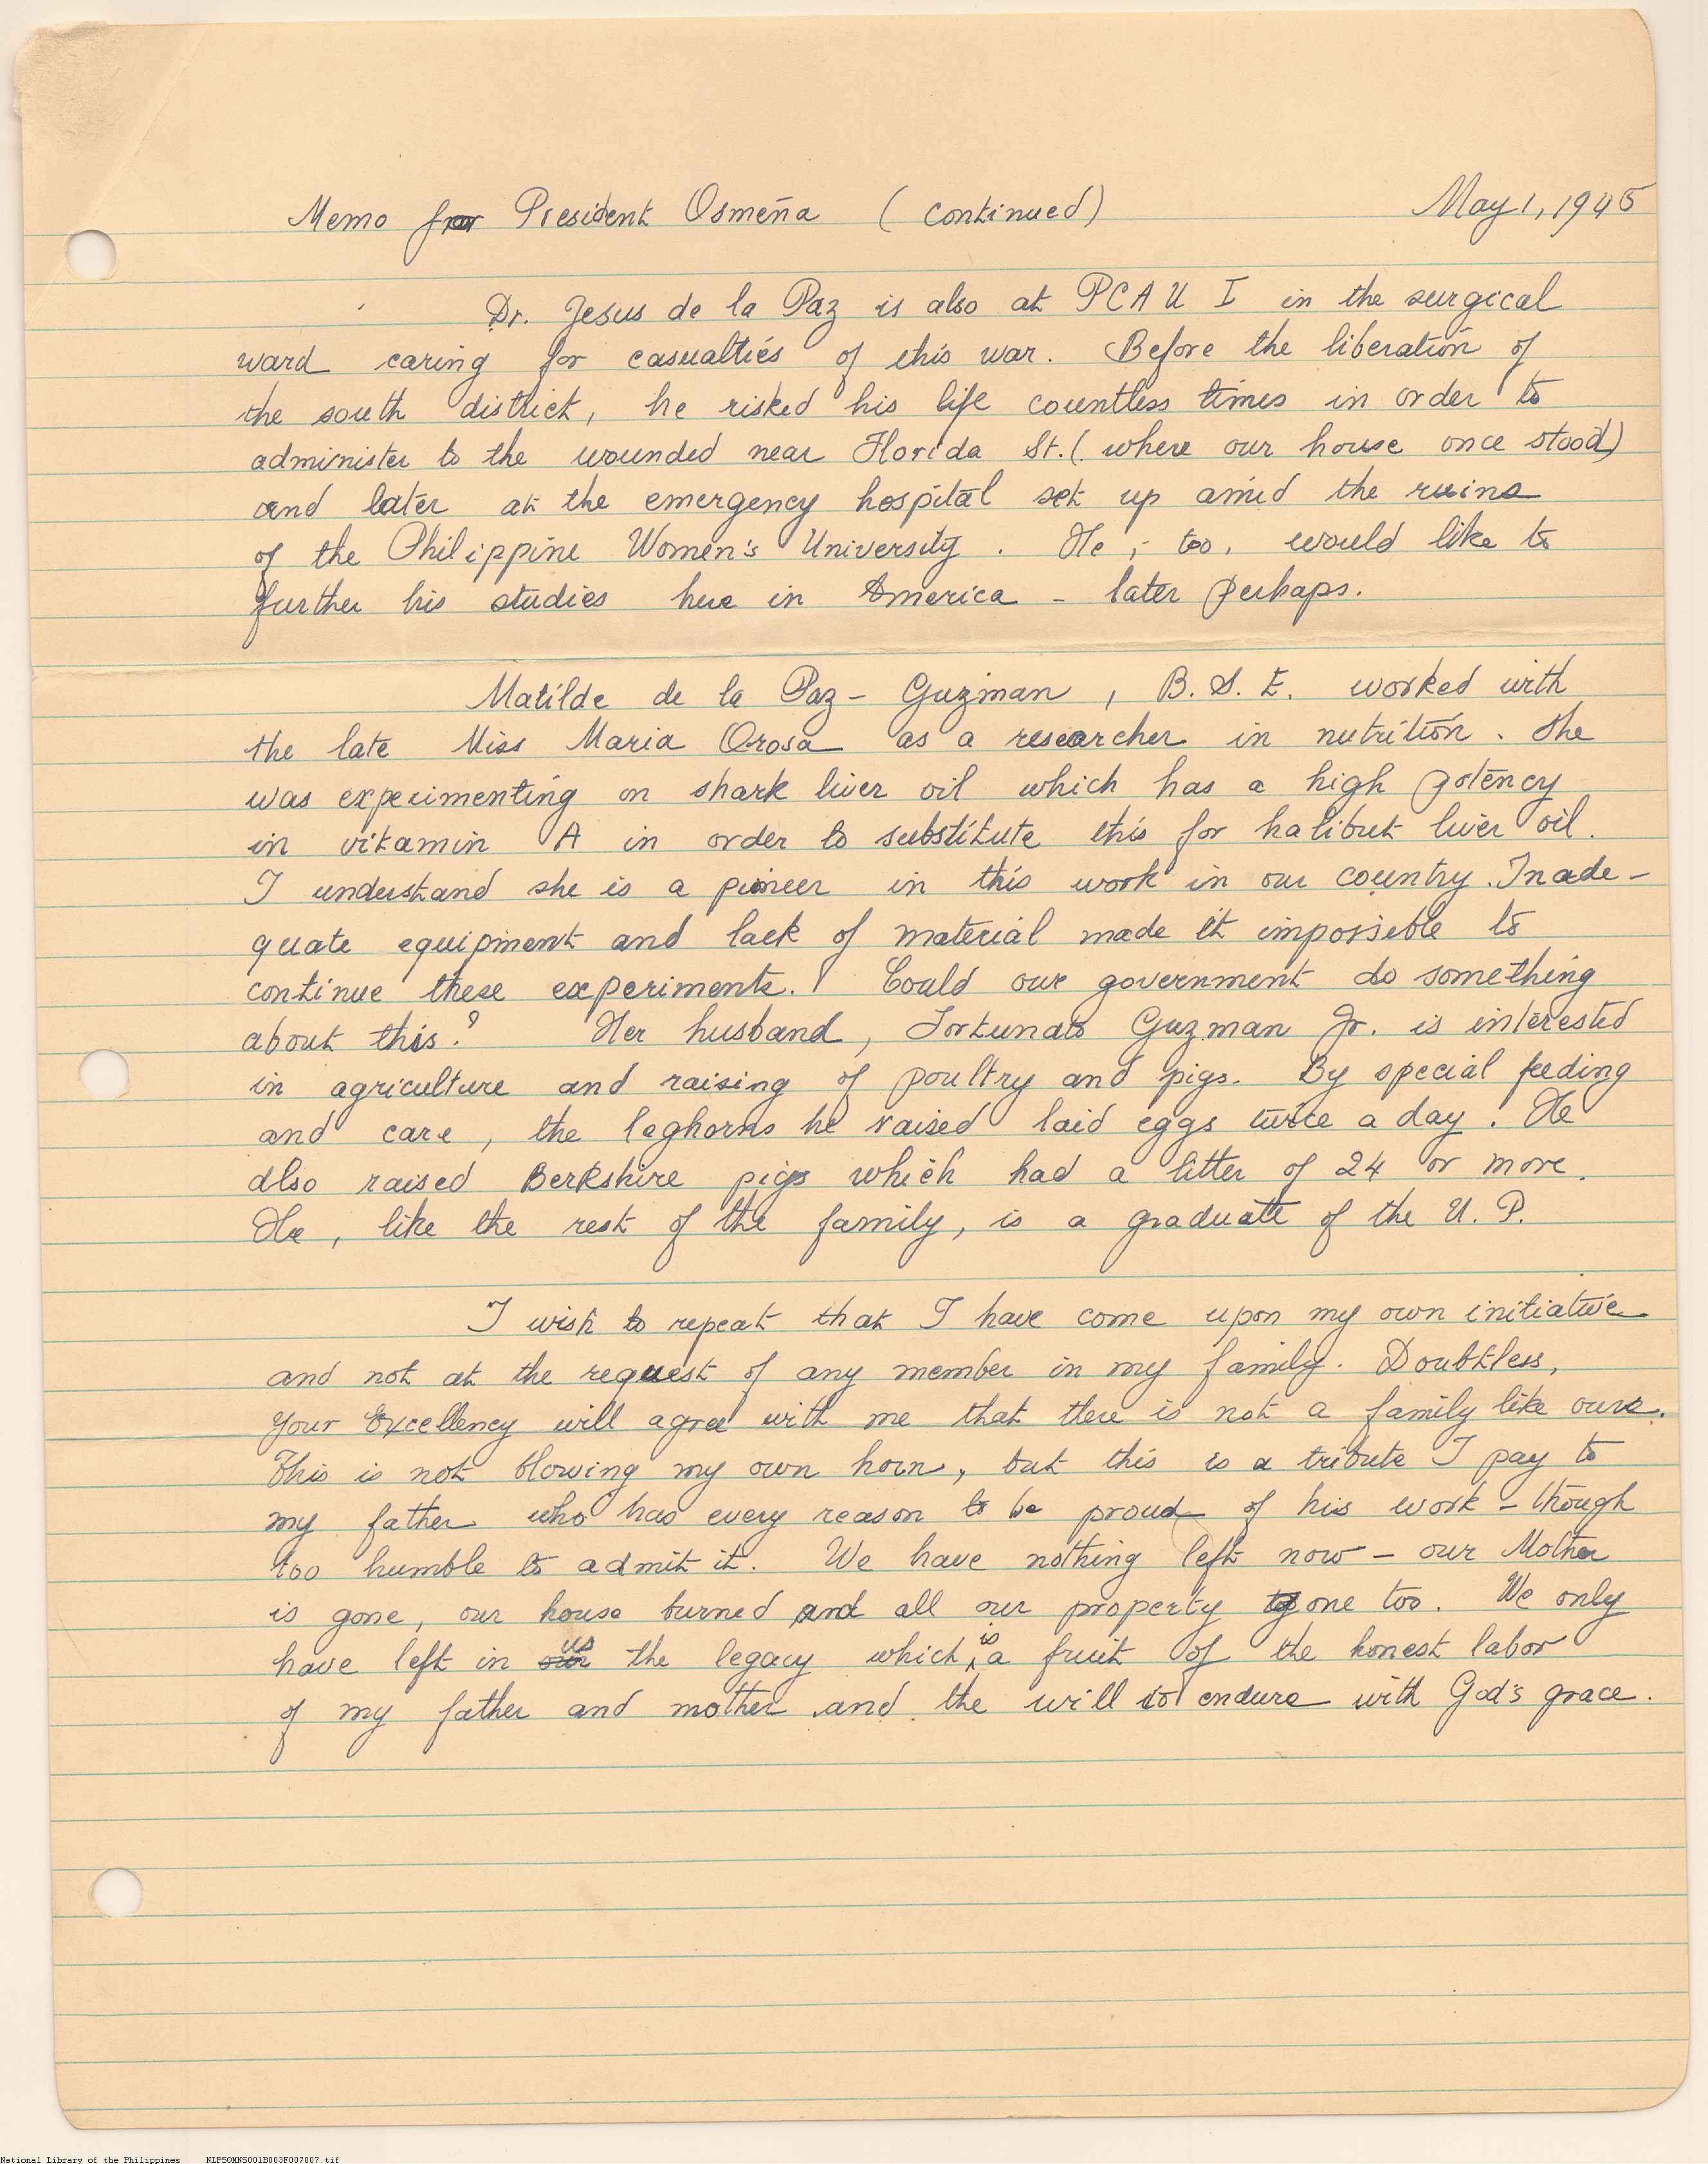 Memo for President Osmeña (continued) May 1, 1945
Dr. Jesus de la Paz is also at PCAU I in the surgical
ward caring for casualties of this war. Before the liberation of
the south district, he risked his life countless times in order to
administer to the wounded near Florida St. (where our house once stood)
and later at the emergency hospital set up amid the ruins
of the Philippine Women's University. He, too, would like to
further his studies here in America - later perhaps.
Matilde de la Paz - Guzman, B.S.E. worked with
the late Miss Maria Orosa as a researcher in nutrition. She
was experimenting on shark liver oil which has a high potency
in vitamin A in order to substitute this for halibut liver oil.
I understand she is a pioneer in this work in our country. Inade-
quate equipment and lack of material made it impossible to
continue these experiments. Could our government do something
about this? Her husband, Fortunato Guzman Jr. is interested
in agriculture and raising of poultry and pigs. By special feeding
and care, the leghorns he raised laid eggs twice a day! He
also raised Berkshire pigs which had a litter of 24 or more.
He, like the rest of the family, is a graduate of the U.P.
I wish to repeat that I have come upon my own initiative
and not at the request of any member in my family. Doubtless,
Your Excellency will agree with me that there is not a family like ours.
This is not blowing my own horn, but this is a tribute I pay to
my father who has every reason to be proud of his work - though
too humble to admit it. We have nothing left now - our Mother
is gone, our house burned and all our property gone too. We only
have left in us the legacy which is a fruit of the honest labor
of my father and mother and the will to endure with God's grace.
National Library of the Philippines NLPSOMNS001B003F007007.tif